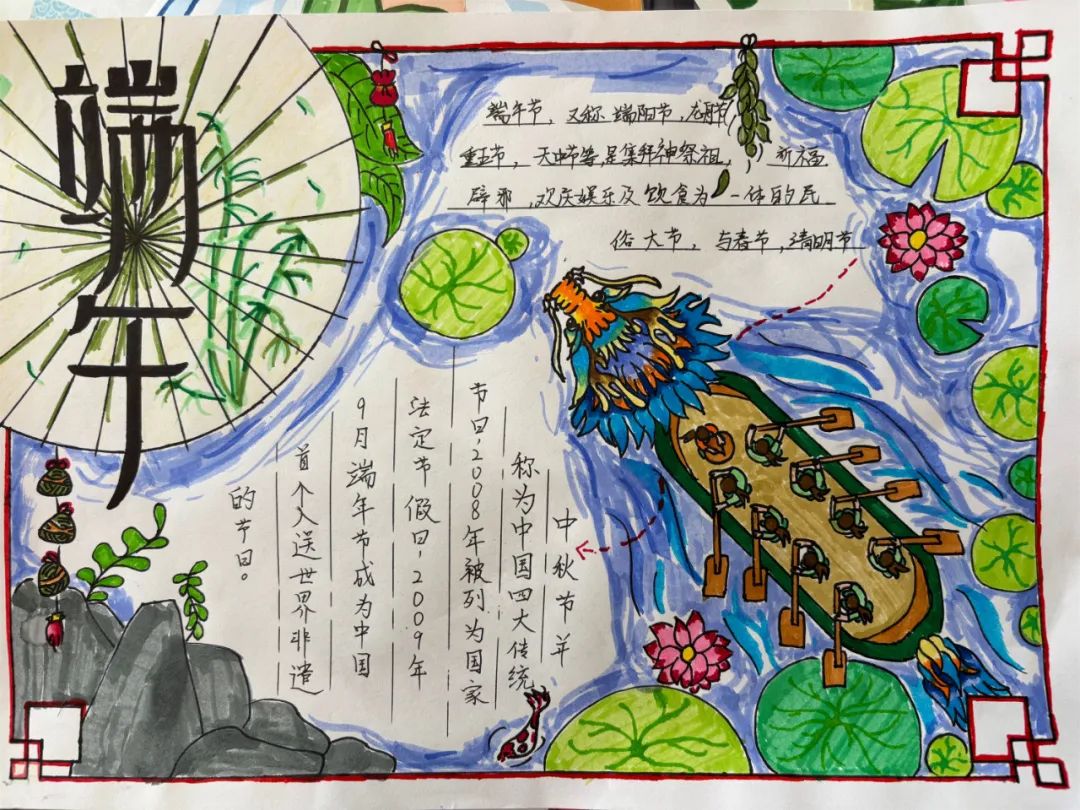 端午
端午节，又称端阳节，龙舟节，
重五节，天中节等，是集拜神祭祖，祈福
辟邪，欢庆娱乐及饮食为一体的民
俗大节，与春节，清明节
中秋节并
称为中国四大传统
节日，2008年被列为国家
法定节假日，2009年
9月端午节成为中国
首个入送世界非遗
的节日。